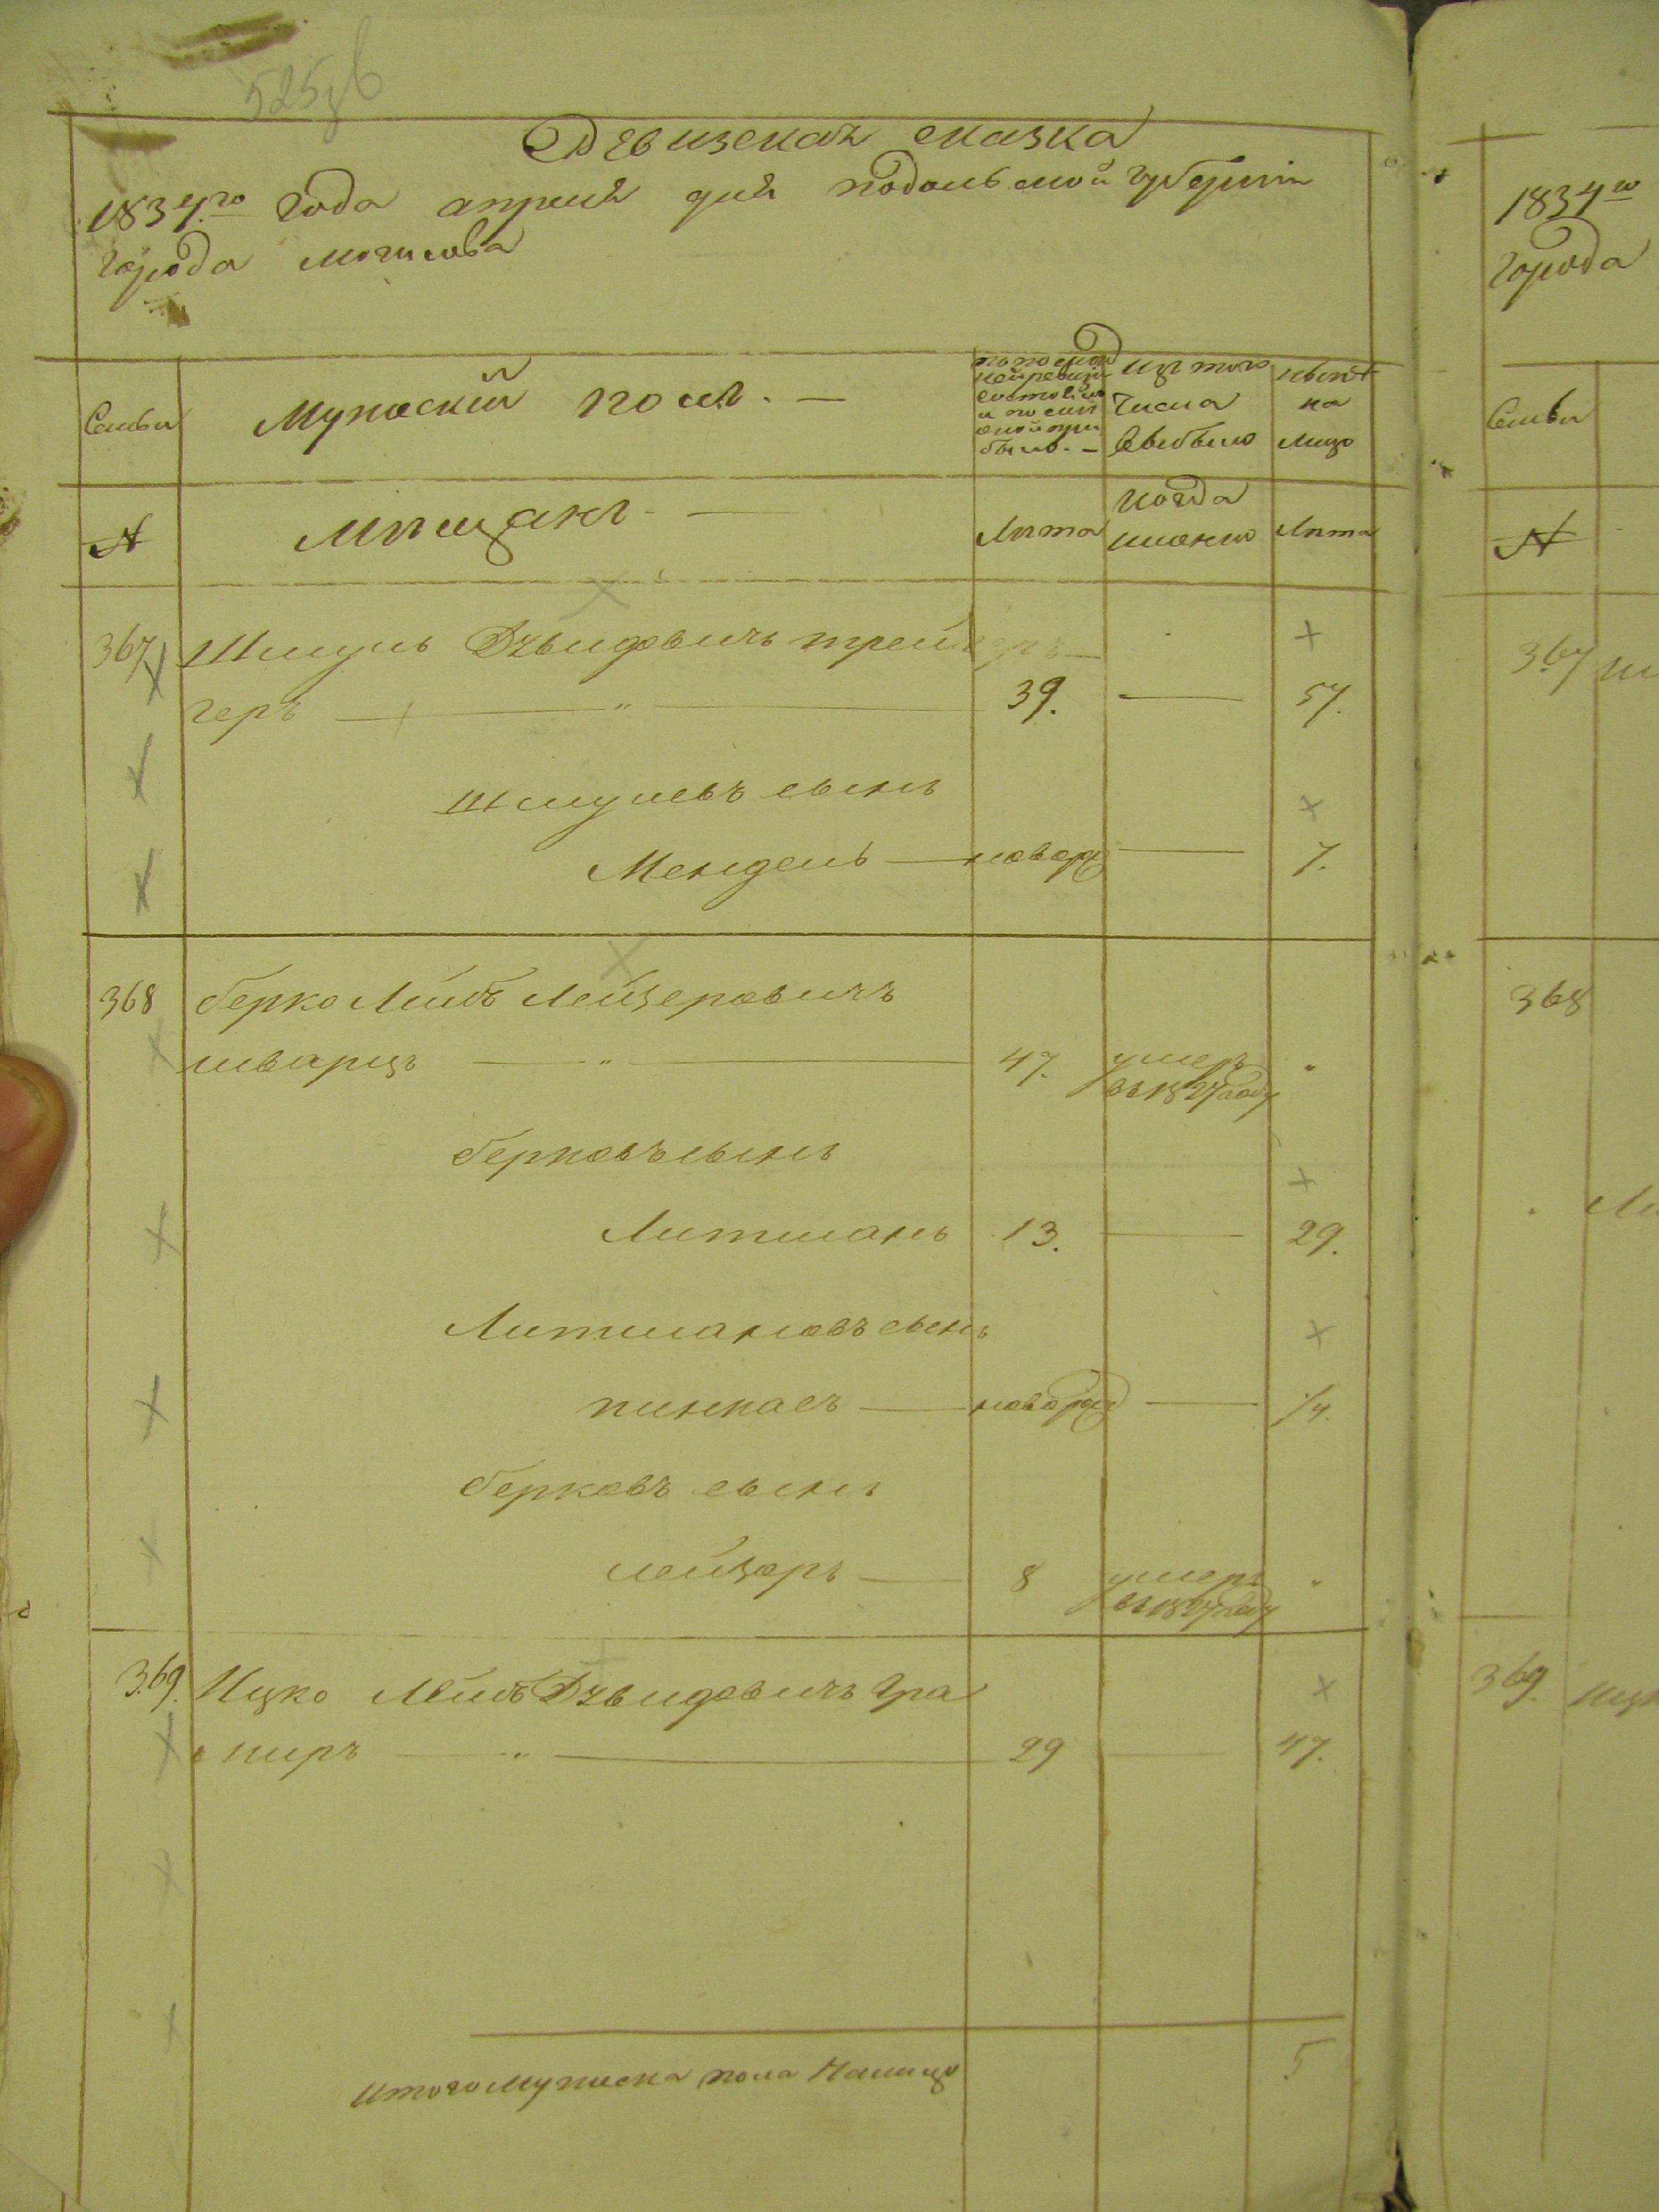 Ревизская сказка
1834го года апреля дня подольской Губернiи
города могилева
Семьи
Мужескiй полъ. —
по послѣд
ней ревизiи
состояло
и после
оной при
было. —
изъ того
Числа
Выбыло
нынѣ
на
лицо
№
Мѣщанъ. —
Лѣта
когда
именно
Лѣта
367 Шмуль Дзвидовичъ трей
геръ — " — 39. — 57.
Шмулевъ сынъ
Мендель — новорож — 7.
368 берко Лейбъ Лейзеровичъ
шварцъ — " — 47. умеръ
въ 1827 году
берковъ сынъ
Литманъ 13. — 29.
Литмановъ сынъ
пинкасъ — новорож — 1/4.
берковъ сынъ
лейзоръ — 8 умеръ
въ 1827 году
369. Ицко Лейбъ Дзвидовичъ Гра
ниръ — " — 29 — 47.
Итого мужеска пола Налицо 5
1834го
города
Семьи
№
367
368
369.